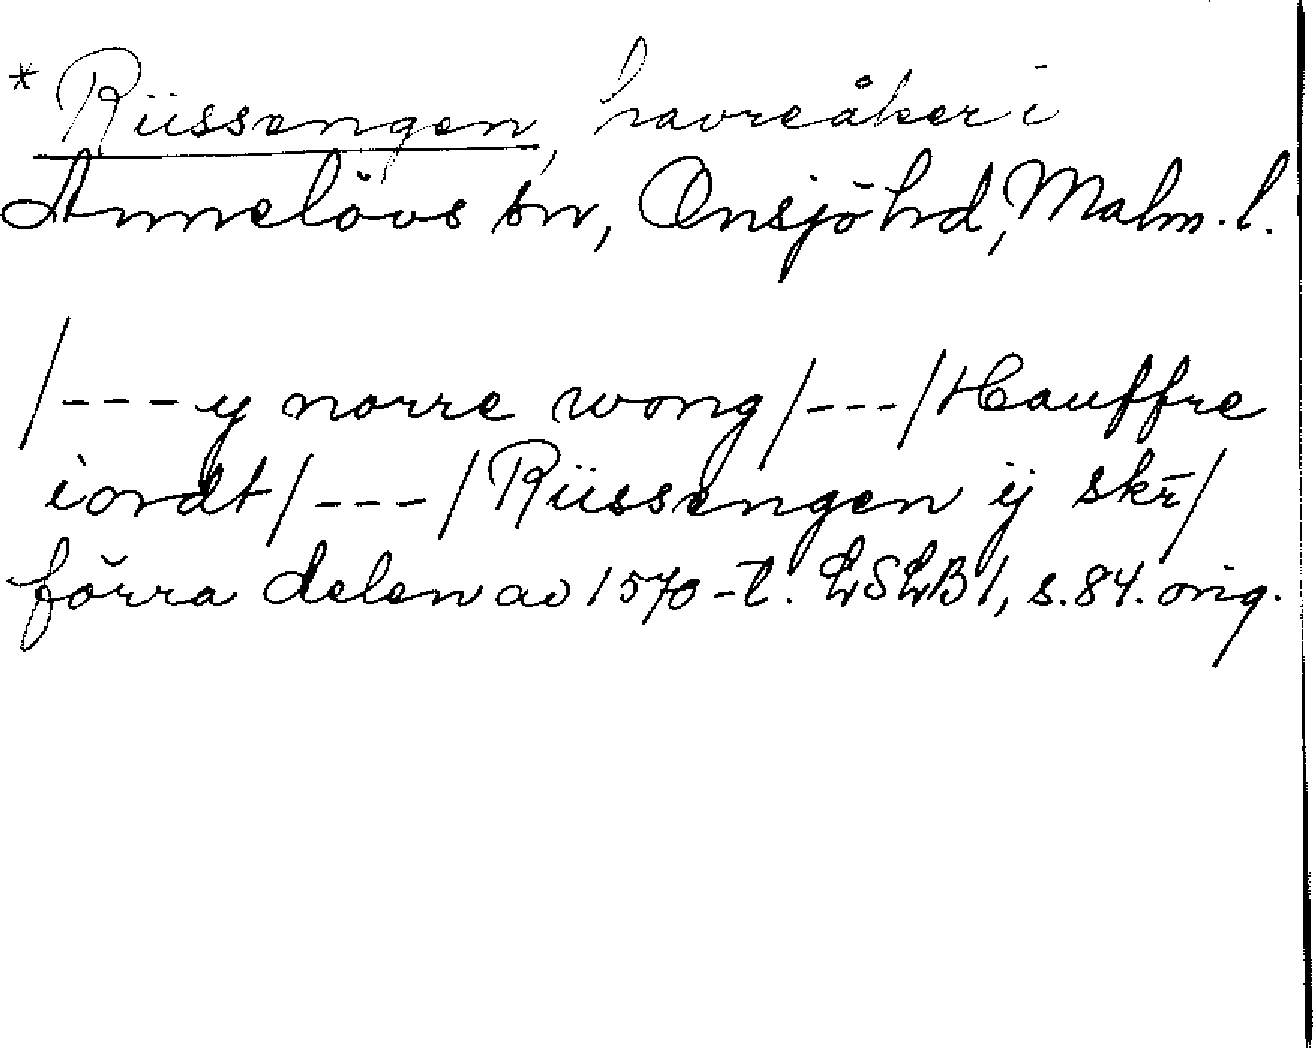 * Riissengen, havreåker i
Annelövs sn, Onsjö hd, Malm. l.
/---y norre wong/---/Hauffre
iordt/---/Riissengen ij skr/
förra delen av 1570-t. LSLB 1, s. 84. orig.